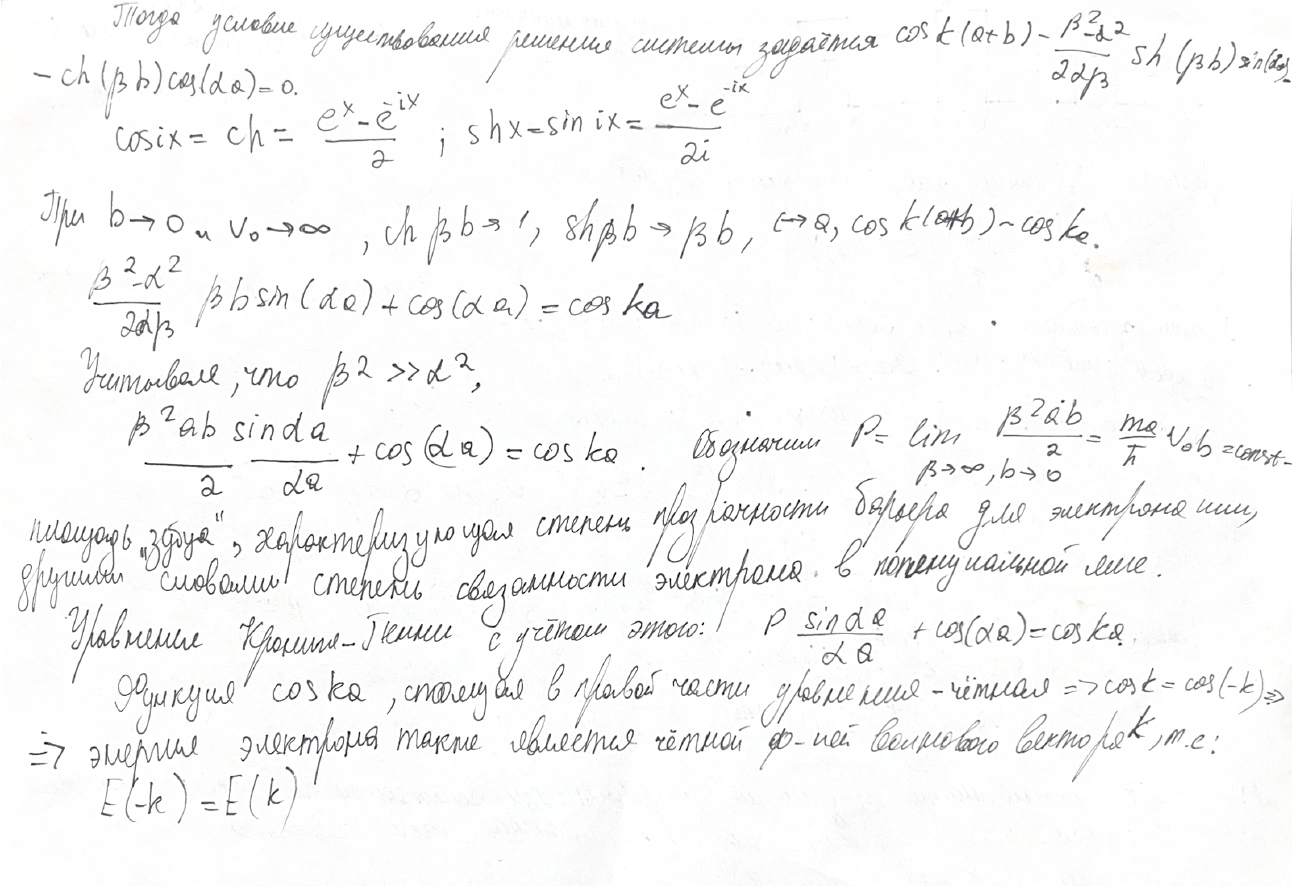 Тогда условие существования решения системы задаётся cos k(a+b) - \frac{β²-α²}{2αβ} sh(βb) sin(αa) -
- ch(βb)cos(αa)=0.
cos ix = ch = \frac{e^x - e^{-ix}}{2} ; sh x = sin ix = \frac{e^x - e^{-ix}}{2i}
При b→0 и V₀→∞, ch βb→1, sh βb→βb, c→a, cos k(a+b) ~ cos ka.
\frac{β²-α²}{2αβ} βb sin(αa) + cos(αa) = cos ka
Учитывая, что β² >> α²,
\frac{β²ab}{2} \frac{sin αa}{αa} + cos(αa) = cos ka. Обозначим P = lim_{β→∞, b→0} \frac{β²ab}{2} = \frac{ma}{ħ} V₀b = const -
площадь „зубца", характеризующая степень прозрачности барьера для электрона или,
другими словами степень связанности электрона в потенциальной яме.
Уравнение Кронига-Пенни с учётом этого: P \frac{sin αa}{αa} + cos(αa) = cos ka.
Функция cos ka, стоящая в правой части уравнения - чётная => cos k = cos(-k) =>
=> энергия электрона также является чётной ф-ией волнового вектора k, т.е:
E(-k) = E(k)